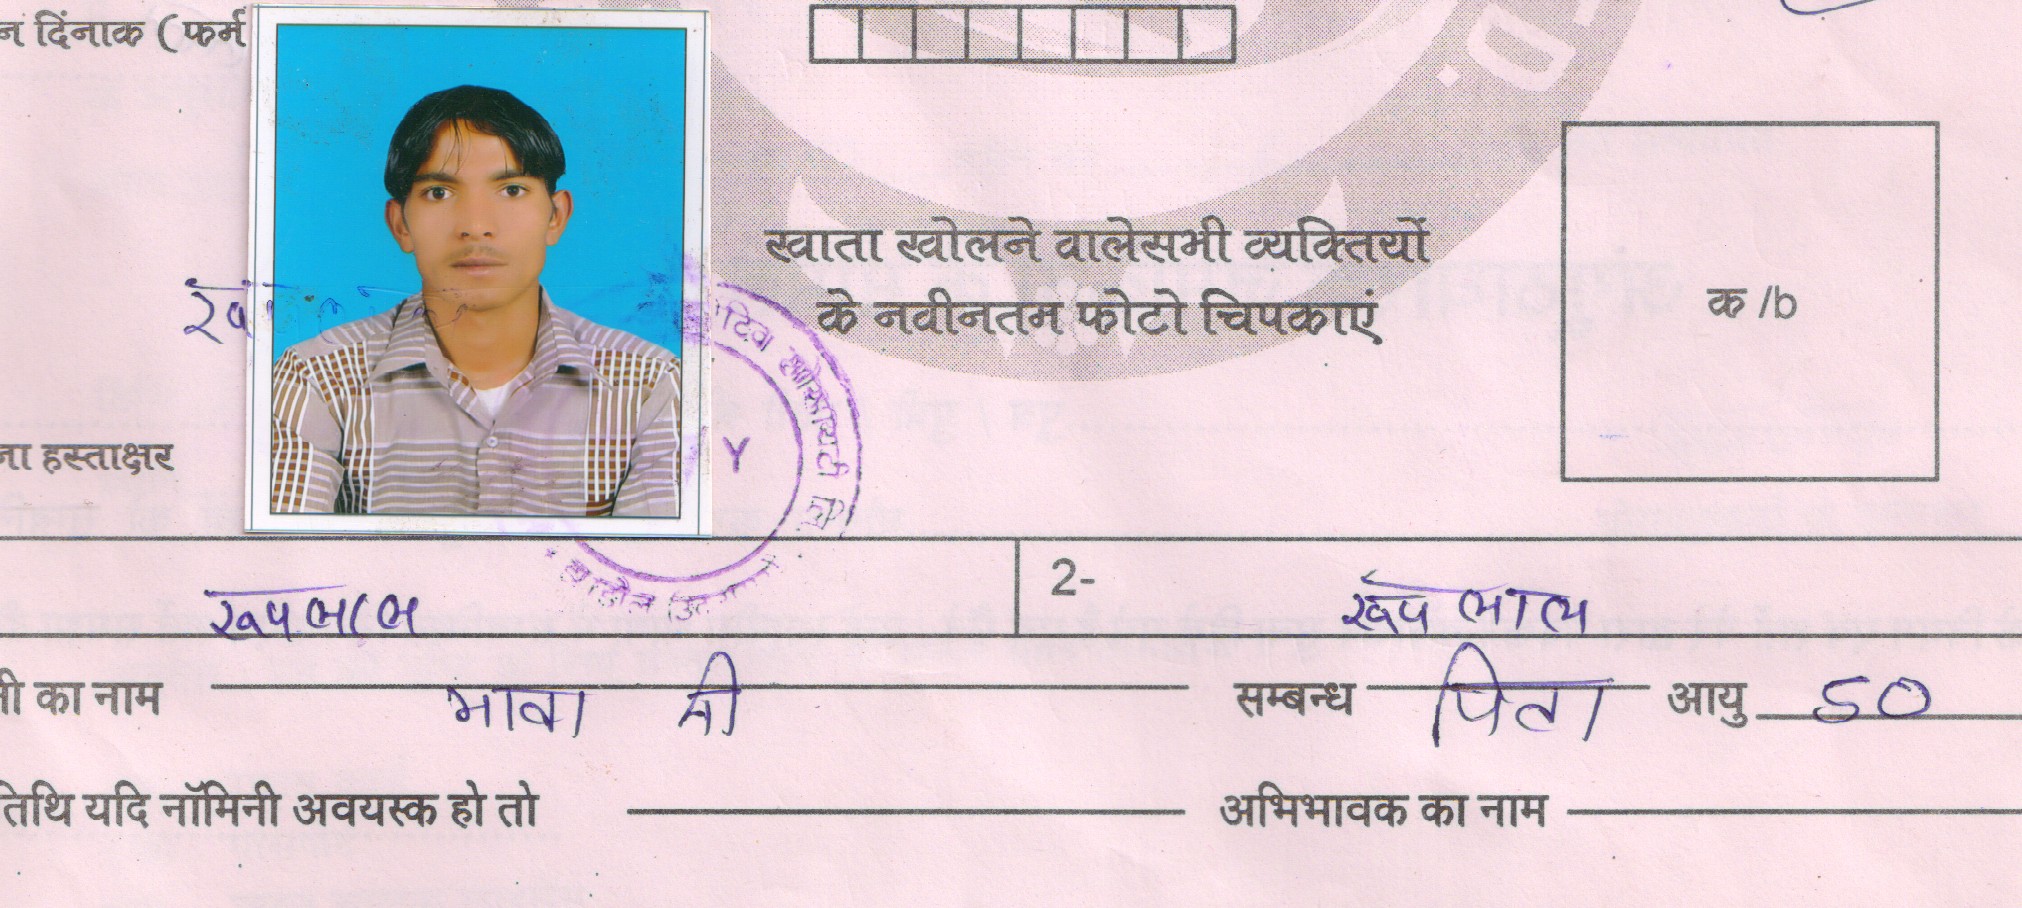 न दिंनाक ( फर्म
खाता खोलने वालेसभी व्यक्तियों
के नवीनतम फोटो चिपकाएं
क /b
ना हस्ताक्षर
टिव सोसायटी लि
Y
रूपलाल 2- रूपलाल
नी का नाम भावा जी सम्बन्ध पिता आयु 50
तिथि यदि नॉमिनी अवयस्क हो तो अभिभावक का नाम